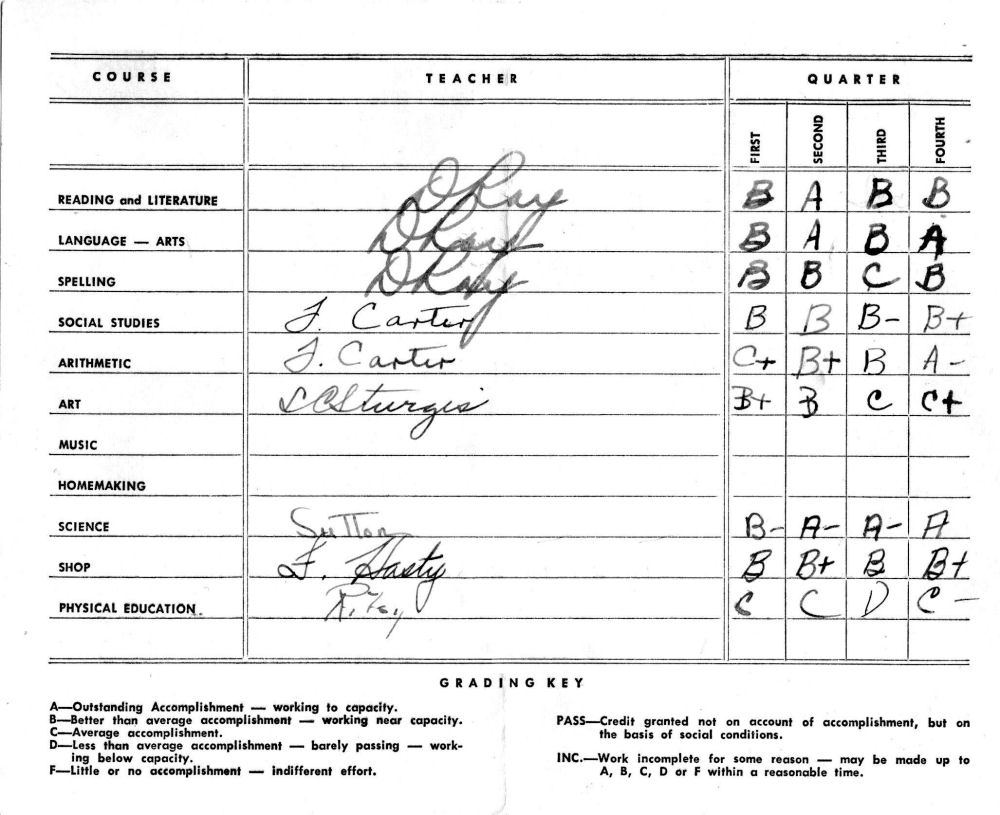 COURSE TEACHER QUARTER
FIRST SECOND THIRD FOURTH
READING and LITERATURE D Ray B A B B
LANGUAGE — ARTS D Ray B A B A
SPELLING D Ray B B C B
SOCIAL STUDIES F. Carter B B B- B+
ARITHMETIC F. Carter C+ B+ B A-
ART L C Sturgis B+ B C C+
MUSIC
HOMEMAKING
SCIENCE Sutton B- A- A- A
SHOP F. Hasty B B+ B B+
PHYSICAL EDUCATION C C D C-
GRADING KEY
A—Outstanding Accomplishment — working to capacity.
B—Better than average accomplishment — working near capacity.
C—Average accomplishment.
D—Less than average accomplishment — barely passing — work-
ing below capacity.
F—Little or no accomplishment — indifferent effort.
PASS—Credit granted not on account of accomplishment, but on
the basis of social conditions.
INC.—Work incomplete for some reason — may be made up to
A, B, C, D or F within a reasonable time.